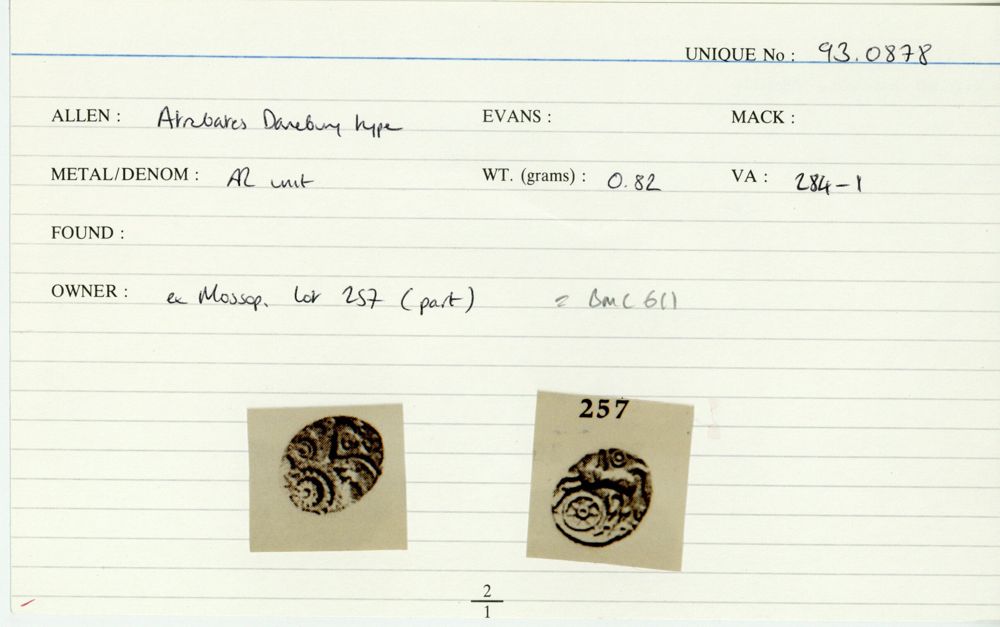 UNIQUE No : 93.0878
ALLEN : Atrebates Danebury type EVANS : MACK :
METAL/DENOM : AR unit WT. (grams) : 0.82 VA : 284-1
FOUND :
OWNER : ex Mossop. Lot 257 (part) = BMC 611
257
2
1